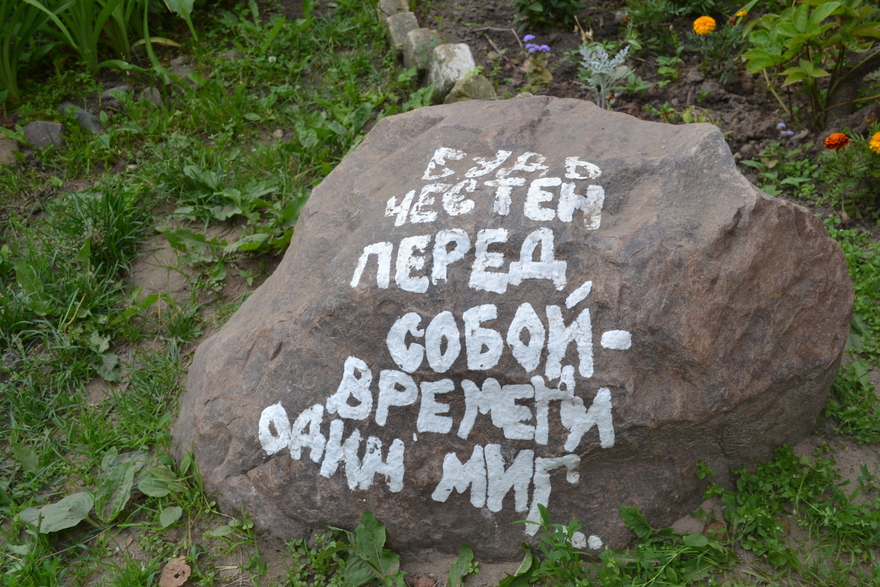 БУДЬ
ЧЕСТЕН
ПЕРЕД
СОБОЙ-
ВРЕМЕНИ
ОДИН МИГ...